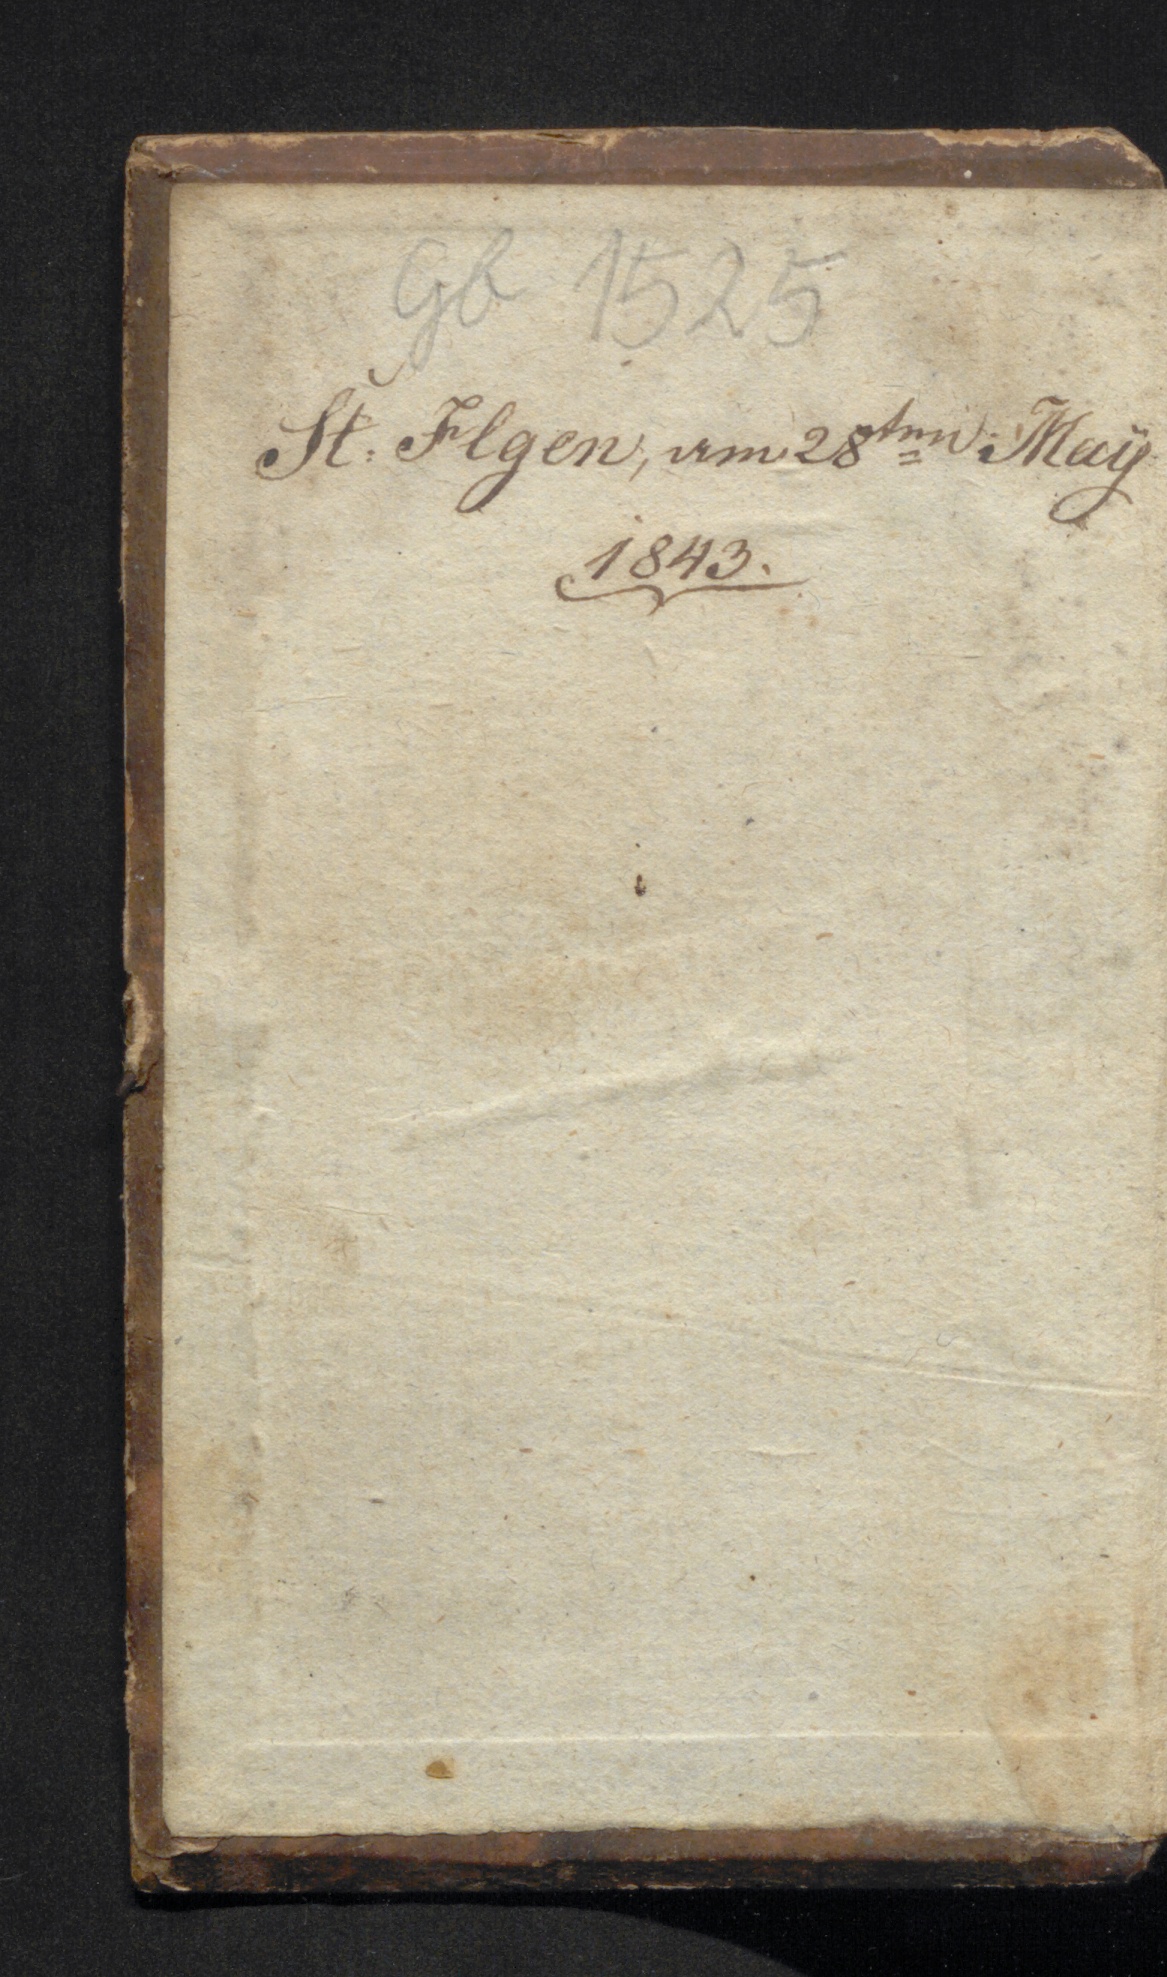 Gb 1525
St. Ilgen, am 28ten May
1843.